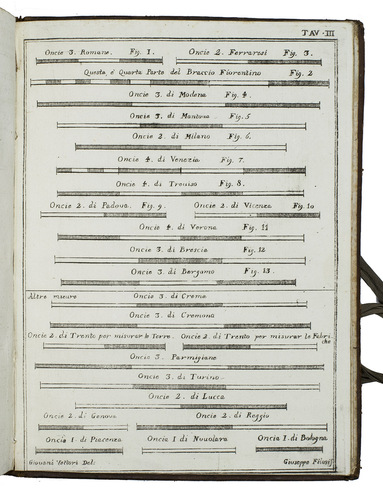 TAV. III
Oncie 3. Romane. Fig. 1. Oncie 2. Ferraresi Fig. 3.
Questa è Quarta Parte del Braccio Fiorentino Fig. 2
Oncie 3. di Modena Fig. 4.
Oncie 3. di Mantova Fig. 5
Oncie 2. di Milano Fig. 6.
Oncie 4. di Venezia Fig. 7.
Oncie 4. di Treviso Fig. 8.
Oncie 2. di Padova. Fig. 9. Oncie 2. di Vicenza Fig. 10
Oncie 4. di Verona Fig. 11
Oncie 3. di Brescia Fig. 12
Oncie 3. di Bergamo Fig. 13.
Altre misure Oncie 3. di Crema
Oncie 3. di Cremona
Oncie 2. di Trento per misurar le Terre. Oncie 2. di Trento per misurar le Fabri-
che
Oncie 3. Parmigiane
Oncie 3. di Turino.
Oncie 2. di Lucca
Oncie 2. di Genova Oncie 2. di Reggio
Oncia 1. di Piacenza Oncia 1. di Nuvolara Oncia 1. di Bologna
Giovani Vettori Del: Giuseppe